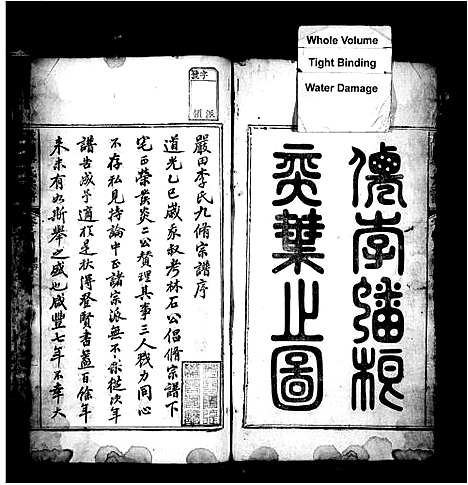 Whole Volume
Tight Binding
Water Damage
僊李蟠根
奕葉止圖
字號
派領
嚴田李氏九脩宗譜序
道光乙巳歲家叔考林石公倡脩宗譜下
宅正榮黄炎二公贊理其事三人戮力同心
不存私見持論中正諸宗派無不依從次年
譜告成予適於是秋得登賢書蓋百餘年
来未有如斯舉之盛也咸豐七年不幸大